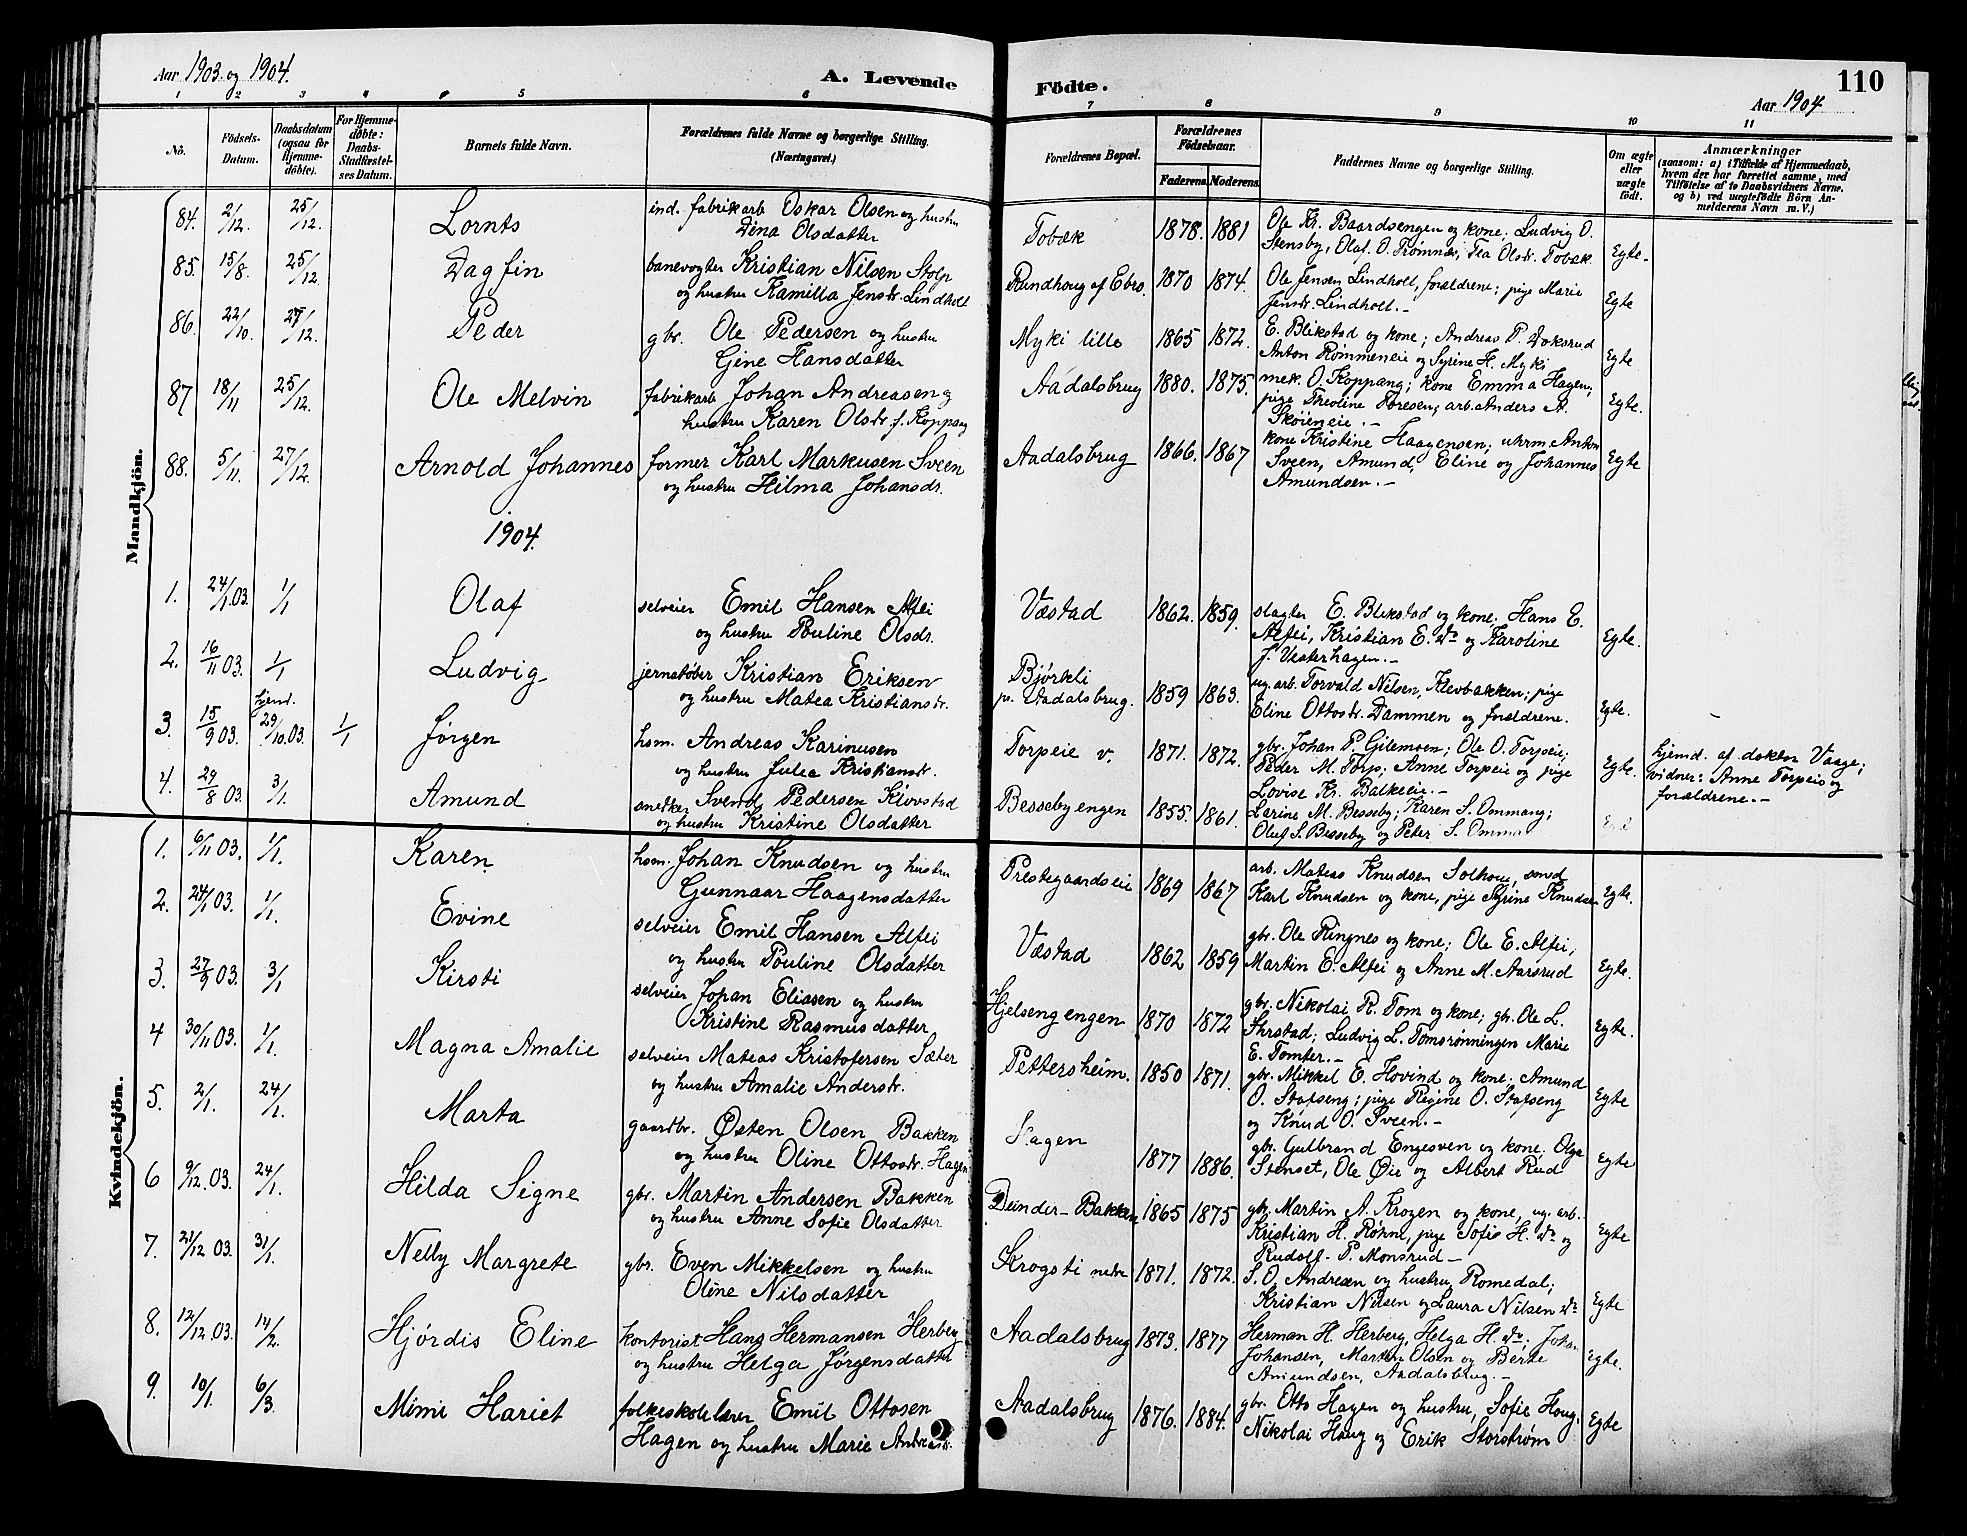 Aar 1903 og 1904.
A. Levende
Födte.
110
Aar 1904
1 2 3 4 5 6 7 8 9 10 11
No.
Födsels-
Datum.
Daabsdatum
(ogsaa for
Hjemme-
döbte).
For Hjemme-
döbte:
Daabs-
Stadfæstel-
ses Datum.
Barnets fulde Navn.
Forældrenes fulde Navne og borgerlige Stilling.
(Næringsvei.)
Forældrenes Bopæl.
Forældrenes
Födselsaar.
Faderens. Moderens.
Faddernes Navne og borgerlige Stilling.
Om ægte
eller
uægte
födt.
Anmærkninger
(saasom: a) i Tilfælde af Hjemmedaab,
hvem der har forrettet samme, med
Tilföielse af to Daabsvidners Navne,
og b) ved uægtefödte Börn An-
melderens Navn m. V.)
Mandkjön.
84. 2/12. 25/12. Lornts
ind. fabrikarb Oskar Olsen og hustru
Dina Olsdatter
Tobæk 1878. 1881
Ole Kr. Baardsengen og kone; Ludvig O.
Stensby, Olaf O. Trømnes, Tea Olsdr. Tobæk.
Egte.
85. 15/8. 25/12 Dagfin
banevogter Kristian Nilsen Stolp
og hustru Kamilla Jensdr. Lindholt
Rundhoug af Ebro. 1870 1874.
Ole Jensen Lindholt, forældrene; pige Marie
Jensdr. Lindholt.-
Egte
86. 22/10. 27/12. Peder
gbr. Ole Pedersen og hustru
Gine Hansdatter
Myki lille 1865 1872.
E. Blikstad og kone; Andreas P. Doksrud
Anton Rømmeneie og Syrine H. Myki
Egte
87 18/11 25/12. Ole Melvin
fabrikarb Johan Andreasen g
hustru Karen Olsdr. f. Koppang
Aadalsbrug 1880. 1875.
mek. O. Koppang; kone Emma Hagen;
pige Theoline Toresen; arb. Anders A.
Skøieneie.-
Egte.
88. 5/11. 27/12. Arnold Johannes
former Karl Markusen Sveen
og hustru Hilma Johansdr.
Aadalsbrug 1866. 1867
kone Kristine Haagensen; uhrm. Anton
Sveen, Amund, Eline og Johannes
Amundsen.-
Egte
1904.
1. 24/1.03. 1/1 Olaf
selveier Emil Hansen Alfei
og hustru Pouline Olsdr.
Væstad 1862. 1859.
slagter E. Blikstad og kone; Hans E.
Alfei, Kristian E. do og Karoline
J. Vesterhagen.-
Egte.
2. 16/11 03. 1/1 Ludvig
jernstøber Kristian Eriksen
og hustru Matea Kristiansdr.
Bjørkli
pr. Aadalsbrug. 1859 1863.
ug. arb. Torvald Nilsen, Klevbakken; pige
Eline Ottosdr. Dammen og forældrene.
Egte.
3. 15/9 03. hjemd. 29/10.03. 1/1 Jørgen
hsm. Andreas Karinusen
og hustru Julea Kristiansdr.
Torpeie v. 1871. 1872.
gbr. Johan P. Gilemoen; Ole O. Torpeie;
Peder M. Torp; Anne Torpeie og pige
Lovise Kr. Balkeeie.-
Egte.
hjemd. af doktor Vaage;
vidner: Anne Torpeie og
forældrene.-
4. 29/8 03. 3/1. Amund
snedker Svend Pedersen Kløvstad
og hustru Kristine Olsdatter
Bessebyengen 1855. 1861.
Larine M. Besseby; Karen S. Ommang;
Oluf S. Besseby og Peter S. Omma
Kvindekjön.
1. 6/11 03. 1/1. Karen
hsm. Johan Knudsen og hustru
Gunnaar Haagensdatter
Prestegaardseie 1869 1867
arb. Mateas Knudsen Solhoug, smed
Karl Knudsen og kone, pige Syrine Knudsen
Egte.
2. 24/1 03. 1/1. Evine
selveier Emil Hansen Alfei
og hustru Pouline Olsdatter
Væstad 1862 1859
gbr. Ole Ringnes og kone; Ole E. Alfei;
Martin E. Alfei og Anne M. Aarsrud
Egte.
3. 27/9 03. 3/1 Kirsti
selveier Johan Eliasen og hustru
Kristine Rasmusdatter
Hjelsengengen 1870 1872
gbr. Nikolai R. Tom og kone; gbr. Ole L.
Ludvig L. Tomsrønningen Marie
E. Tomter.-
Egte.
4 30/11 03. 1/1. Magna Amalie
selveier Mateas Kristofersen Sæter
og hustru Amalie Andersdr.
Pettersheim. 1850 1871.
gbr. Mikkel E. Hovind og kone; Amund
O. Stafseng; pige Regine O. Stafseng
og Knud O. Sveen.-
Egte
5. 2/1. 24/1. Marta
gaardbr. Østen Olsen Bakken
og hustru Oline Ottosdr. Hagen
Hagen 1877 1886.
gbr. Gulbrand Engesven og kone; Olga
Stenset, Ole Øie og Albert Rud
Egte
6 9/12.03. 24/1. Hilda Signe
gbr. Martin Andersen Bakken
og hustru Anne Sofie Olsdatter
Bakken 1865 1875
gbr. Martin A. Krogen og kone, ug. arb.
Kristian H. Røhne, pige Sofie H. do og
Rudolf P. Monsrud-
Egte
7. 21/12 03. 31/1. Nelly Margrete
gbr. Even Mikkelsen og hustru
Oline Nilsdatter
Krogsti nedre 1871. 1872.
S. O. Andreæn og hustru, Romedal;
Kristian Nilsen og Laura Nilsen do
Egte
8. 12/12.03. 14/2. Hjórdis Eline
kontorist Hans Hermansen Herberg
og hustru Helga Jørgensdatter
Aadalsbrug 1873. 1877
Herman H. Herberg, Helga H. do; Johs.
Johansen, Martin Olsen og Berte
Amundsen, Aadalsbrug.-
Egte.
9. 10/1. 6/3. Mimi Hariet
folkeskolelærer Emil Ottosen
Hagen og hustru Marie Andreasdr.
Aadalsbrug 1876. 1884.
gbr. Otto Hagen og hustru, Sofie Houg,
Nikolai Houg og Erik Storstrøm
Egte